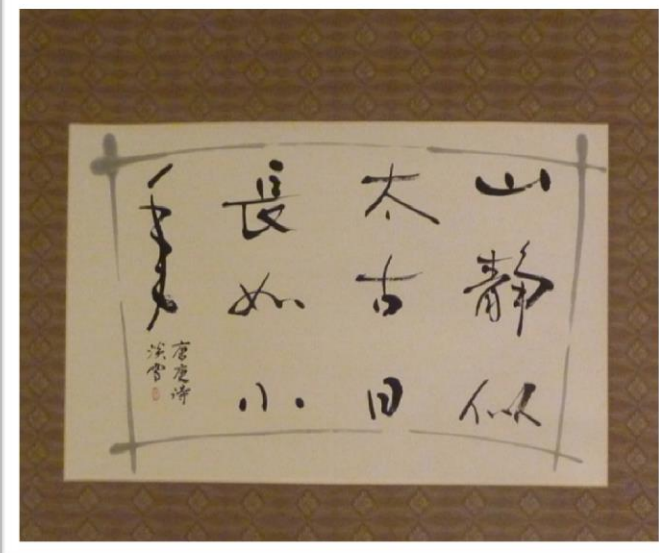 山静似
太古日
長如小
年
唐庚詩